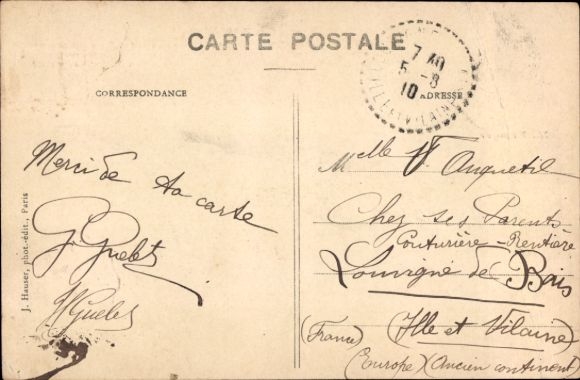 CARTE POSTALE
CORRESPONDANCE
ADRESSE
7 40
5 - 8
10
ILLE ET VILAINE
Merci de ta carte
G. Guelet
Guelet
J. Hauser, phot.-édit., Paris
Melle V Anquetil
Chez ses Parents
Couturière - Rentière
Louvigné de Bais
(France) (Ille et Vilaine)
(Europe) (Ancien continent)